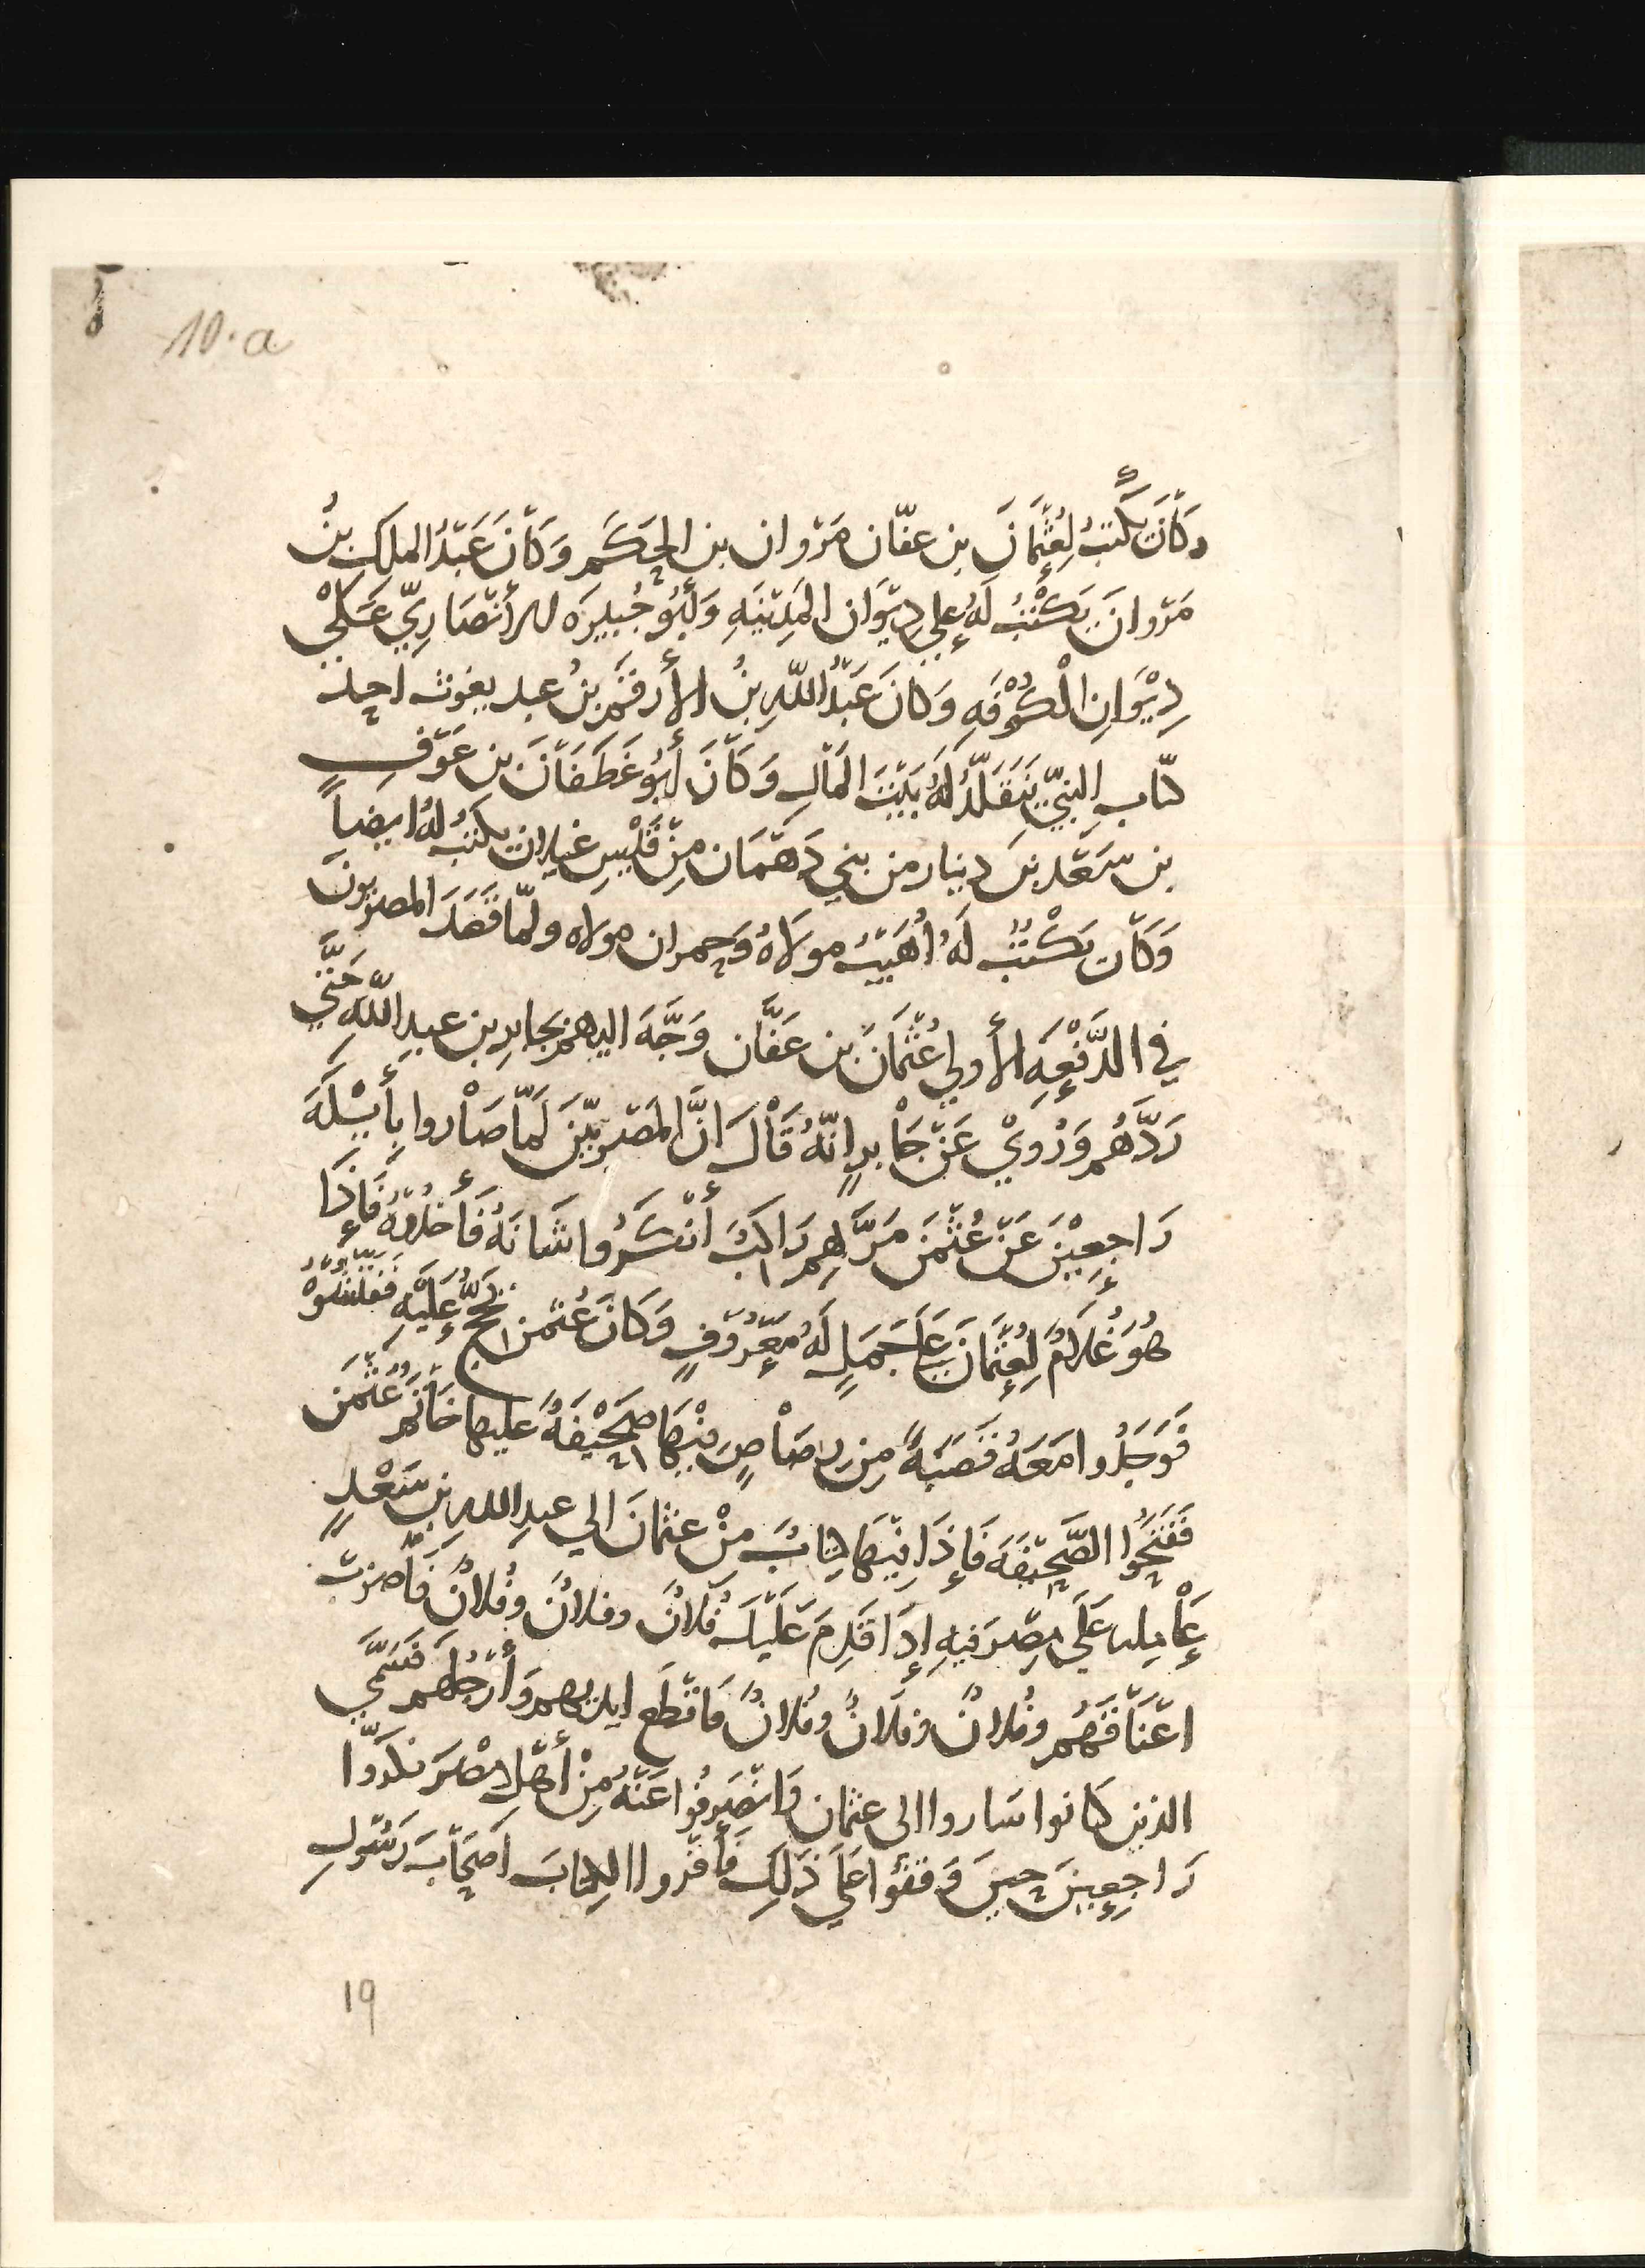 10.a
وَكَانَ يَكْتُبُ لِعُثْمَانَ بن عفّان مَرْوان بن الحَكَم وَكَانَ عَبْدُ الملك بنُ
مَرْوانَ يَكْتُبُ لَهُ عَلي دِيْوَان المَدِيْنَهِ وَأَبُو جُبيرَه الأنْصَارِيّ عَلَيْ
دِيْوَانِ الْكُوْفَهِ وَكَانَ عَبْدُ اللّهِ بنُ الأرقَم بنُ عبد يغوث احد
كتّاب النبيّ يَتَقَلَّدُ لَهُ بَيْتَ المَالِ وَكَانَ أَبُو غَطَفَانَ بن عَوْفِ
بن سَعْد بن دينار من بني دَهْمَان مِنْ قَيْسِ غيلان يكتبُ لهُ ايضاً
وَكَان يَكْتُبُ لَهُ أُهَيْبُ مولَاهُ وَحمران مولاه ولمّا قصَدَ المصريونَ
في الدَّفْعِهِ الأولي عُثْمَانَ بن عَفَّان وَجَّهَ اليهم بجابرِ بن عبدِ اللّهِ حَتَّي
رَدَّهُم وَرُويْ عَنْ جَابرٍ انّهُ قَالَ انَّ المَصْرِيّيْنَ لَمّا صَاْروا بِأَيْلَهَ
رَاجِعِيْنَ عَنْ عُثْمَنَ مَرَّ بِهِم رَاكبٌ أنْكَرُوا شَانَهُ فَأَخذُوهُ فَإِذَا
هُوَ غُلَامٌ لِعُثْمَانَ عَلَي جَمَلٍ لَهُ مَعْرُوْفٍ وَكَانَ عُثْمن يحُجُّ عَلَيْهِ فَفَتَّشُوْهُ
فَوَجَدُوا مَعَهُ قَصَبَةً مِن رصَاصٍ فِيْهَا صَحِيْفَةٌ عليها خَاتَمُ عُثْمَن
فَفَتَحُوُا الصَّحِيْفَهَ فَإِذَا فِيْهَا كتابٌ مِنْ عثمانَ الي عبدِ الله بن سَعْدٍ
عَاْمِله عَلَي مِصْرَ فيهِ إِذَا قَدِمَ عَلَيْكَ فُلَانٌ وفلانٌ وفُلانٌ فَاضرِبْ
اعْنَاقَهُم وفُلانٌ وفلَانٌ وفُلانٌ فَاقْطَع ايديهم وَأَرْجُلهم فَسَمَّي
الذين كانوا سَاروا الى عثمان وَانْصَرفُوا عَنْهُ مِنْ أهْل مْصَرَ فكرّوا
رَاجِعِينَ حينَ وَقَفُوا عَلَي ذَلِكَ فَأَقْرَوا الكِتابَ اَصْحَابَ رَسُولِ
19